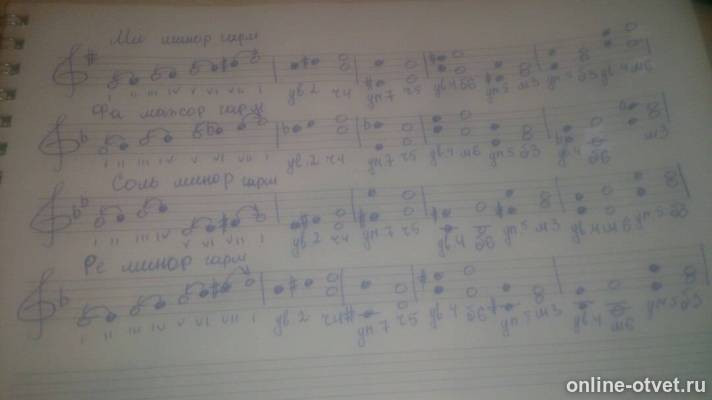 Ми минор гарм
I II III IV V VI VII I ув.2 ч4 ум 7 ч5 ув 4 б6 ум 5 м3 ум 5 б3 ув 4 м6
Фа мажор гарм
I II III IV V VI VII I ув.2 ч4 ум7 ч5 ув4 м6 ум5 б3 ув.4 б6 м3
Соль минор гарм
I II III IV V VI VII I ув.2 ч4 ум 7 ч5 ув.4 б6 ум5 м3 ув4 м6 ум5 б3
Ре минор гарм
I II III IV V VI VII I ув.2 ч4 ум 7 ч5 ув 4 б6 ум5 м3 ув 4 м6 ум 5 б3
online-otvet.ru